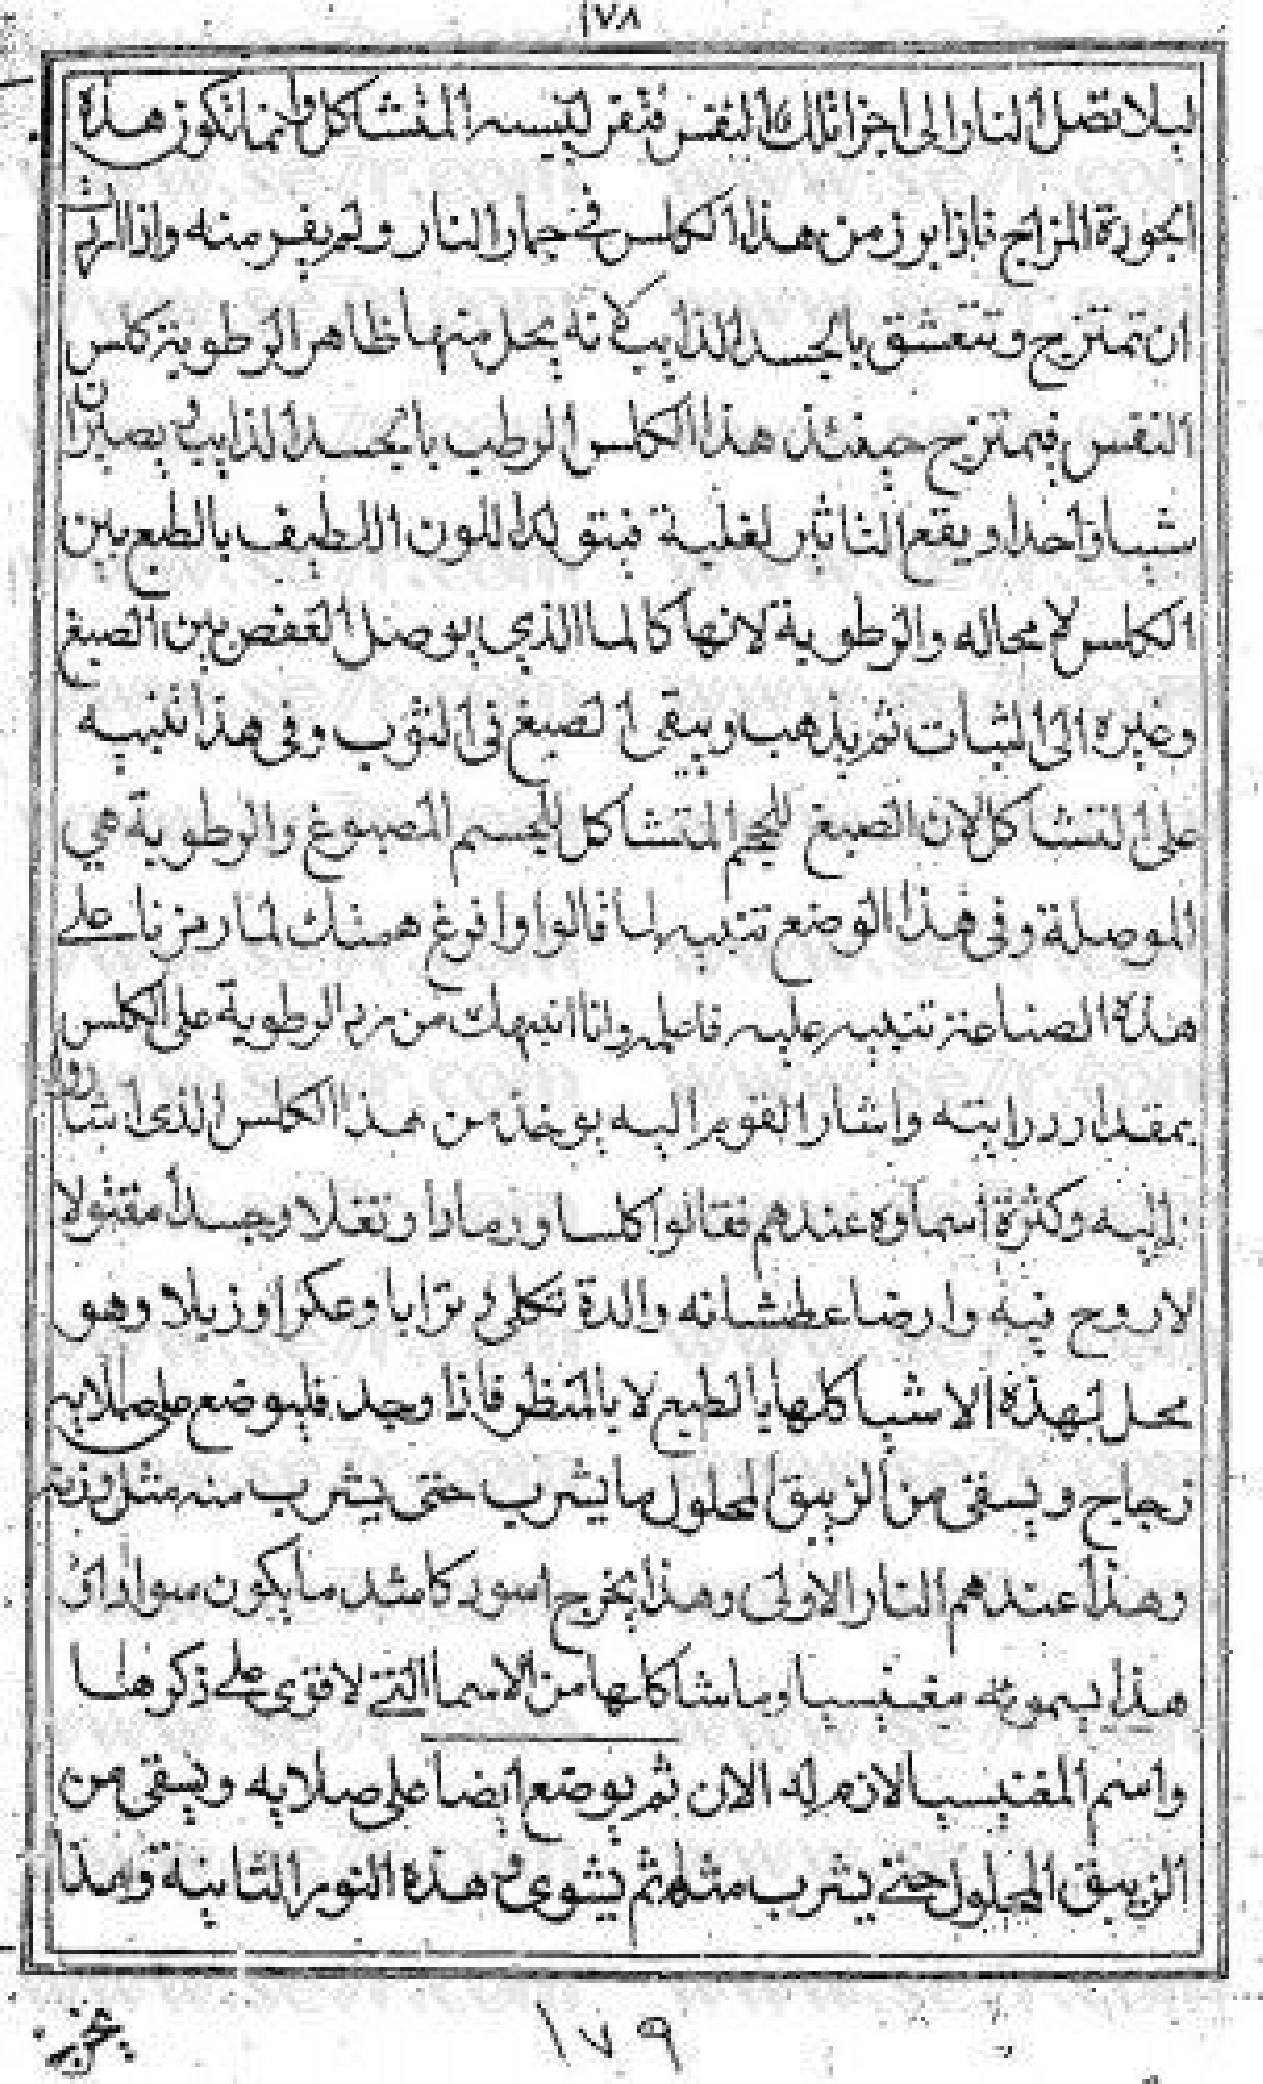 ١٧٨
ليلا تصل النار الى اجزا تلك النفس فتفر ليبسه المتشاكل وانما تكون هذه
الجورة المزاج فاذا برز من هذا الكلس في جمار النار ولم يفر منه واذا اردت
ان تمتزج وتتعشق بالجسد الذايب لانه يحل منها ظاهر الرطوبة كلس
النفس فيمتزج حينئذ هذا الكلس الرطب بالجسد الذايب يصيران
شيا واحدا ويقع التاثير لغلبة فيتولد اللون اللطيف بالطبع بين
الكلس لا محاله والرطوبة لانها كالما الذي يوصل العفص بين الصبغ
وغيره الى الثبات ثم يذهب ويبقى الصبغ في الثوب وفي هذا تنبيه
على التشاكل لان الصبغ المتشاكل للجسم المصبوغ والرطوبة هي
الموصلة وفي هذا الوضع تنبيه لما قالوا وافرغ همتك لما رمزنا على
هذه الصناعة تنبيه عليه فاعلمه وانا انبهك من زم الرطوبة على الكلس
بمقدار درايته واشار القوم اليه يوخذ من هذا الكلس الذي اشاروا
اليه وكثرة اسماوه عندهم فقالوا كلسا ورمادا وتفلا وجسدا مقتولا
لا روح فيه وارضا عطشانه والدة ثكلى وترابا وعكرا وزبلا وهو
محل لهذه الاشيا كلها بالطبع لا بالمنظر فاذا وجد فليوضع على صلايه
زجاج ويسقى من الزيبق المحلول ما يشرب حتى يشرب منه مثل وزنه
وهذا عندهم النار الاولى وهذا يخرج اسود كاشد ما يكون سوادا في
هذا يسمونه مغنيسيا وما شاكلها من الاسما التي لا قوى على ذكرها
واسم المغنيسيا لازم له الان ثم يوضع ايضا على صلايه ويسقى من
الزيبق المحلول حتى يشرب مثله ثم يشوى هذه النور الثانية وهذا
يخرج
١٧٩